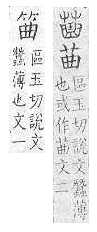 區玉切說文蠶薄
也或作文二
區玉切說文
蠶薄也文一